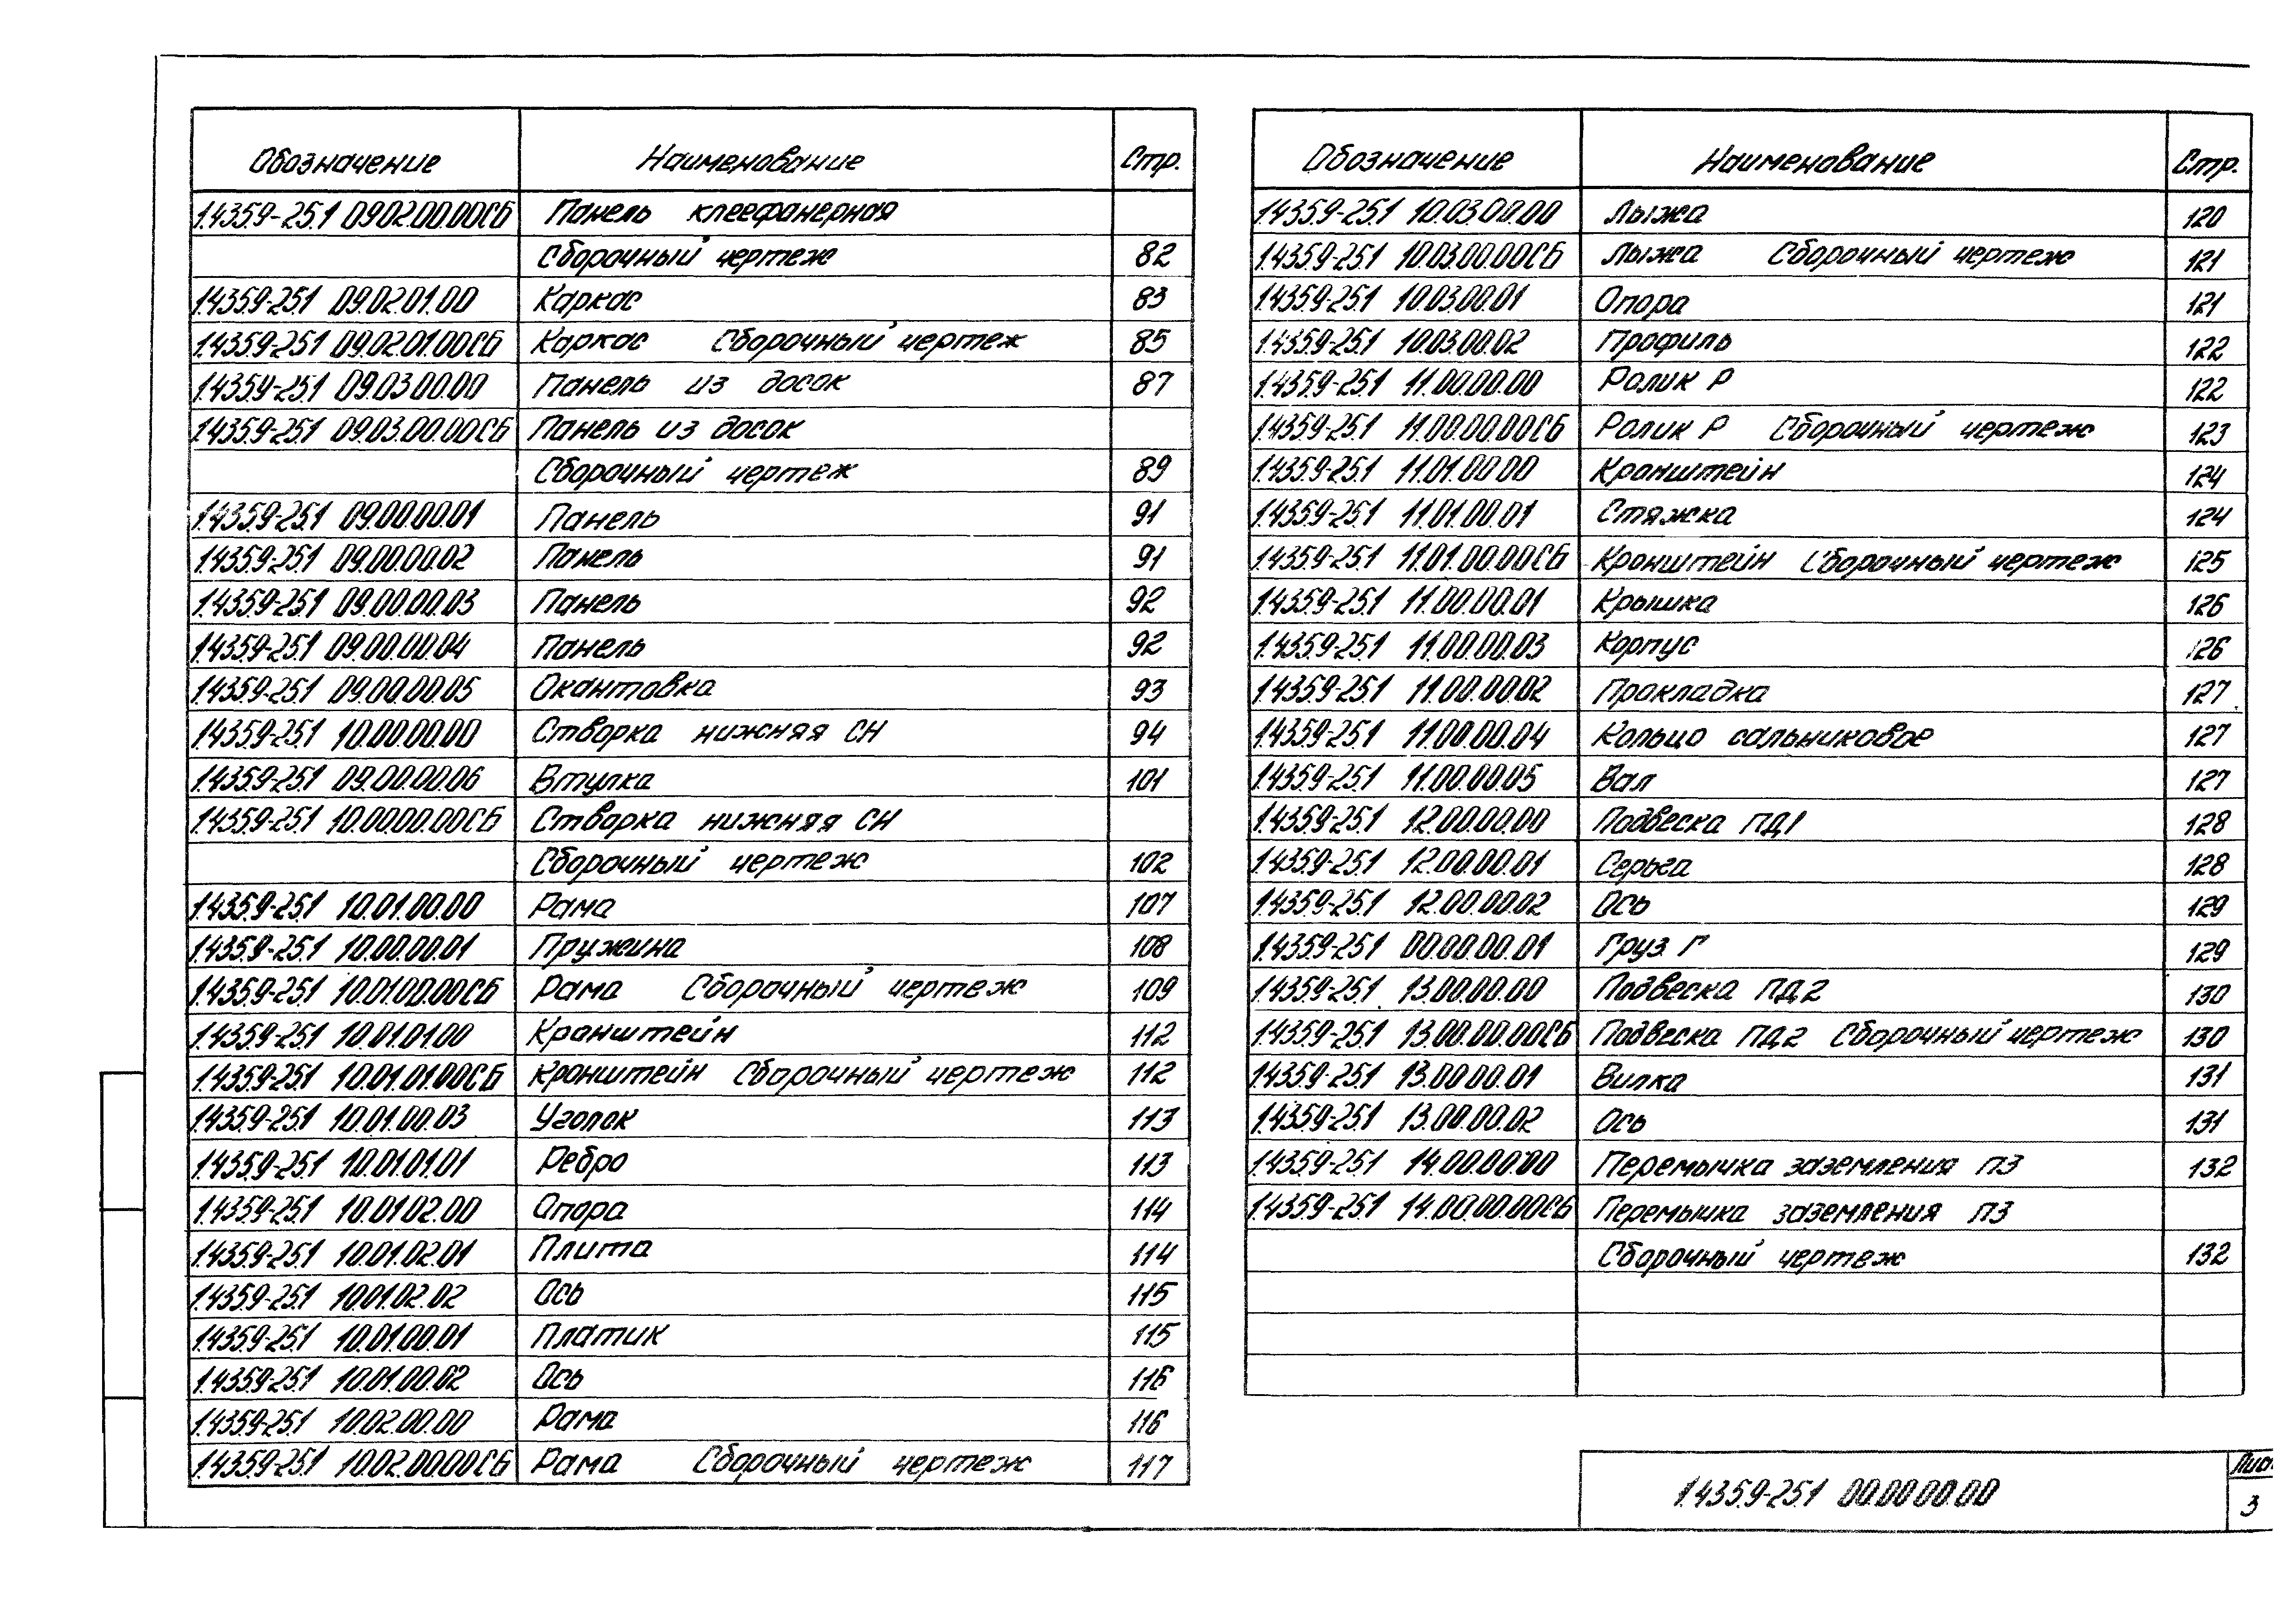 Обозначение Наименование Стр.
1.435.9-25.1 09.02.00.00СБ Панель клеефанерная
Сборочный чертеж 82
1.435.9-25.1 09.02.01.00 Каркас 83
1.435.9-25.1 09.02.01.00СБ Каркас Сборочный чертеж 85
1.435.9-25.1 09.03.00.00 Панель из досок 87
1.435.9-25.1 09.03.00.00СБ Панель из досок
Сборочный чертеж 89
1.435.9-25.1 09.00.00.01 Панель 91
1.435.9-25.1 09.00.00.02 Панель 91
1.435.9-25.1 09.00.00.03 Панель 92
1.435.9-25.1 09.00.00.04 Панель 92
1.435.9-25.1 09.00.00.05 Окантовка 93
1.435.9-25.1 10.00.00.00 Створка нижняя СН 94
1.435.9-25.1 09.00.00.06 Втулка 101
1.435.9-25.1 10.00.00.00СБ Створка нижняя СН
Сборочный чертеж 102
1.435.9-25.1 10.01.00.00 Рама 107
1.435.9-25.1 10.00.00.01 Пружина 108
1.435.9-25.1 10.01.00.00СБ Рама Сборочный чертеж 109
1.435.9-25.1 10.01.01.00 Кронштейн 112
1.435.9-25.1 10.01.01.00СБ Кронштейн Сборочный чертеж 112
1.435.9-25.1 10.01.00.03 Уголок 113
1.435.9-25.1 10.01.01.01 Ребро 113
1.435.9-25.1 10.01.02.00 Опора 114
1.435.9-25.1 10.01.02.01 Плита 114
1.435.9-25.1 10.01.02.02 Ось 115
1.435.9-25.1 10.01.00.01 Платик 115
1.435.9-25.1 10.01.00.02 Ось 116
1.435.9-25.1 10.02.00.00 Рама 116
1.435.9-25.1 10.02.00.00СБ Рама Сборочный чертеж 117
Обозначение Наименование Стр.
1.435.9-25.1 10.03.00.00 Лыжа 120
1.435.9-25.1 10.03.00.00СБ Лыжа Сборочный чертеж 121
1.435.9-25.1 10.03.00.01 Опора 121
1.435.9-25.1 10.03.00.02 Профиль 122
1.435.9-25.1 11.00.00.00 Ролик Р 122
1.435.9-25.1 11.00.00.00СБ Ролик Р Сборочный чертеж 123
1.435.9-25.1 11.01.00.00 Кронштейн 124
1.435.9-25.1 11.01.00.01 Стяжка 124
1.435.9-25.1 11.01.00.00СБ Кронштейн Сборочный чертеж 125
1.435.9-25.1 11.00.00.01 Крышка 126
1.435.9-25.1 11.00.00.03 Корпус 126
1.435.9-25.1 11.00.00.02 Прокладка 127
1.435.9-25.1 11.00.00.04 Кольцо сальниковое 127
1.435.9-25.1 11.00.00.05 Вал 127
1.435.9-25.1 12.00.00.00 Подвеска ПД1 128
1.435.9-25.1 12.00.00.01 Серьга 128
1.435.9-25.1 12.00.00.02 Ось 129
1.435.9-25.1 00.00.00.01 Груз Г 129
1.435.9-25.1 13.00.00.00 Подвеска ПД2 130
1.435.9-25.1 13.00.00.00СБ Подвеска ПД2 Сборочный чертеж 130
1.435.9-25.1 13.00.00.01 Вилка 131
1.435.9-25.1 13.00.00.02 Ось 131
1.435.9-25.1 14.00.00.00 Перемычка заземления ПЗ 132
1.435.9-25.1 14.00.00.00СБ Перемычка заземления ПЗ
Сборочный чертеж 132
1.435.9-25.1 00.00.00.00
Лис
3